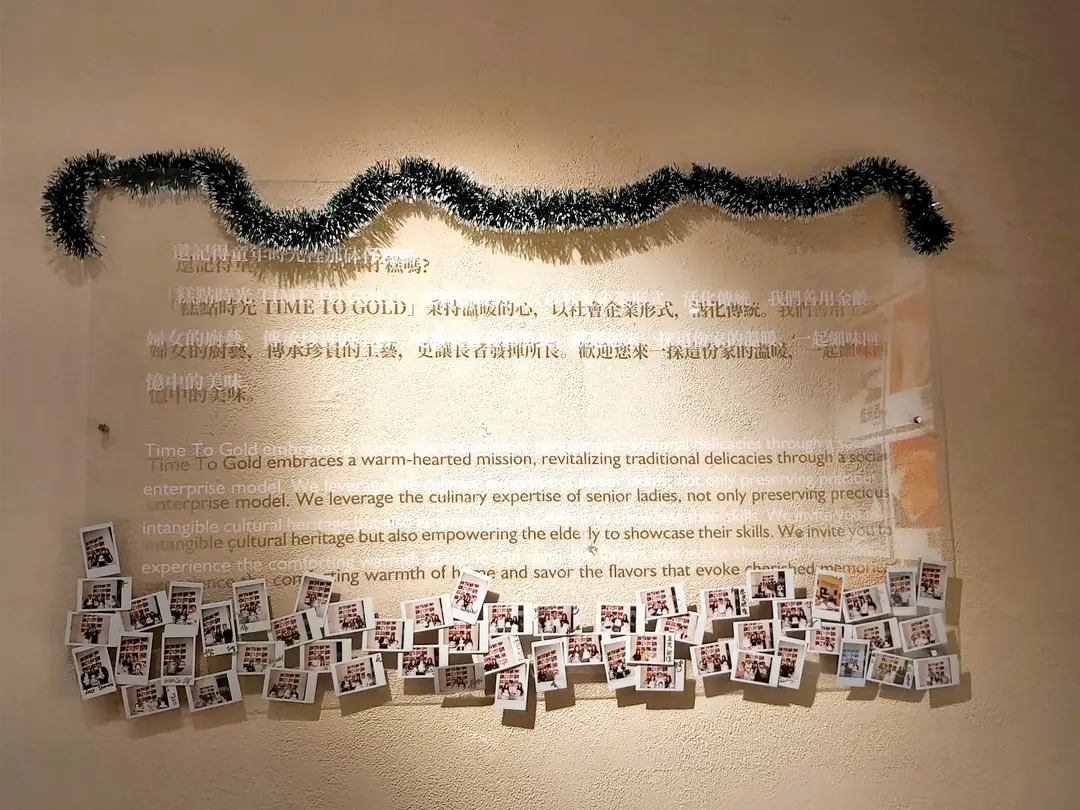 還記得童年時光裡那砵仔糕嗎?
「糕點時光 TIME TO GOLD」秉持溫暖的心，以社會企業形式，活化傳統。我們善用金齡
婦女的廚藝，傳承珍貴的工藝，更讓長者發揮所長。歡迎您來一探這份家的溫暖，一起細味回
憶中的美味。
Time To Gold embraces a warm-hearted mission, revitalizing traditional delicacies through a social
enterprise model. We leverage the culinary expertise of senior ladies, not only preserving precious
intangible cultural heritage but also empowering the elderly to showcase their skills. We invite you to
experience the comforting warmth of home and savor the flavors that evoke cherished memories